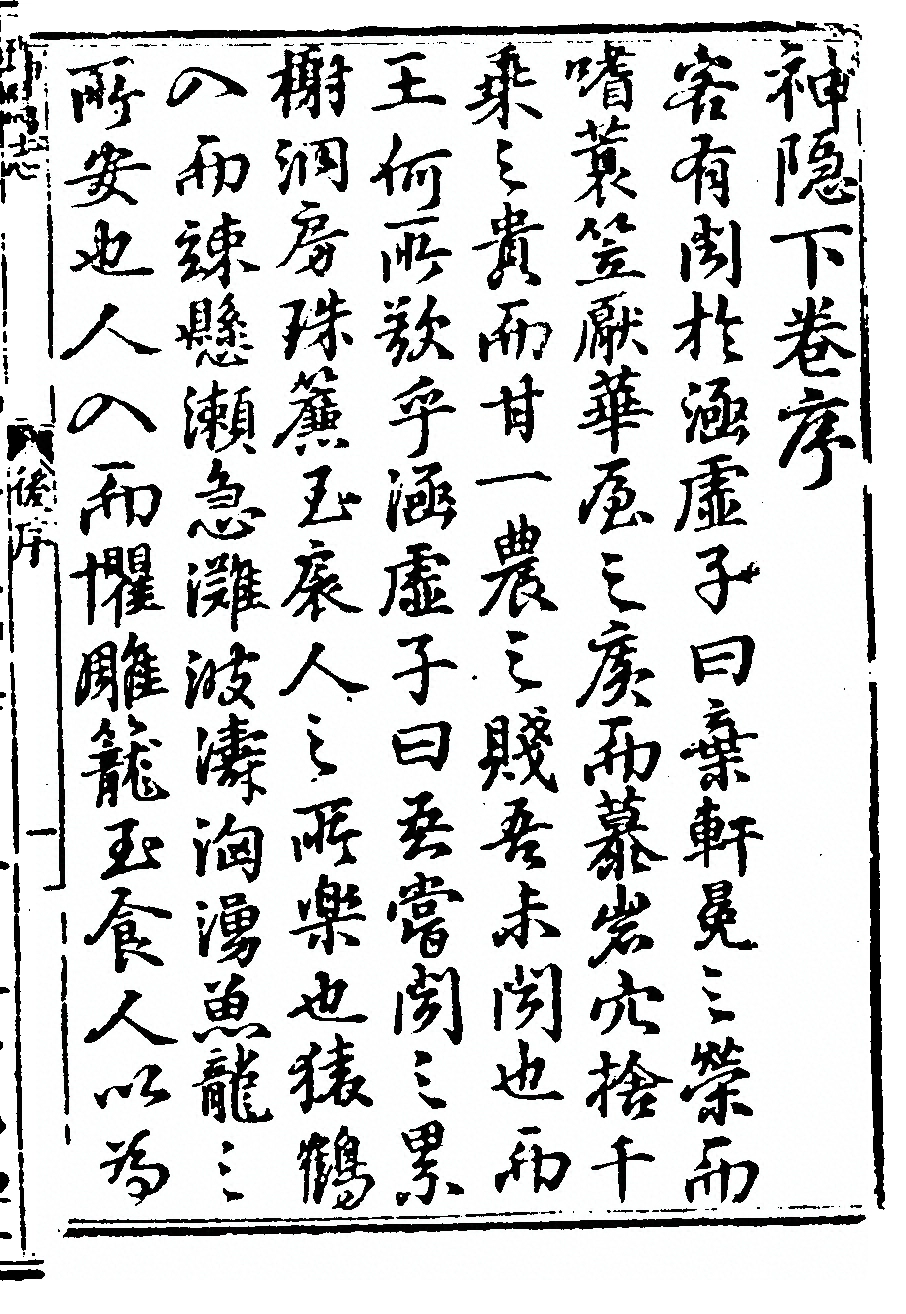 神隱下卷序
客有問於涵虛子曰棄軒冕之榮而
嗜蓑笠厭華屋之廣而慕岩穴捨千
乘之貴而甘一農之賤吾未聞也而
王何所歉乎涵虛子曰吾嘗聞之累
榭洞房珠簾玉扆人之所樂也猿鶴
入而竦懸瀨急灘波濤洶湧魚龍之
所安也人入而懼雕籠玉食人以為
後序
一